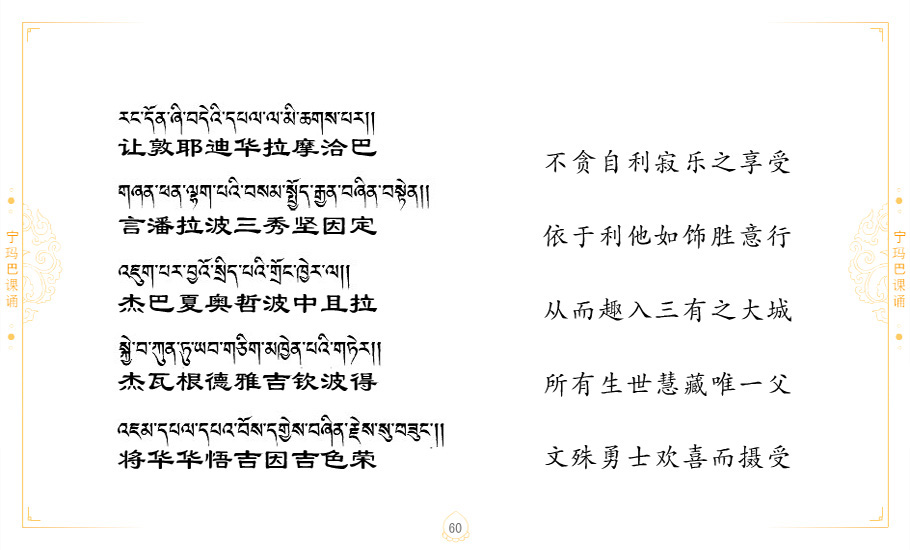 རང་དོན་ཞི་བདེའི་དཔལ་ལ་མི་ཆགས་པར།།
让敦耶迪华拉摩洽巴
不贪自利寂乐之享受
གཞན་ཕན་ལྷག་པའི་བསམ་སྤྱོད་རྒྱན་བཞིན་བསྟེན།།
言潘拉波三秀坚因定
依于利他如饰胜意行
འཇུག་པར་བྱའོ་སྲིད་པའི་གྲོང་ཁྱེར་ལ།།
杰巴夏奥哲波中且拉
从而趣入三有之大城
སྐྱེ་བ་ཀུན་ཏུ་ཡབ་གཅིག་མཁྱེན་པའི་གཏེར།།
杰瓦根德雅吉钦波得
所有生世慧藏唯一父
འཇམ་དཔལ་དཔའ་བོས་དགྱེས་བཞིན་རྗེས་སུ་བཟུང་།།
将华华悟吉因吉色荣
文殊勇士欢喜而摄受
宁玛巴课诵
宁玛巴课诵
60